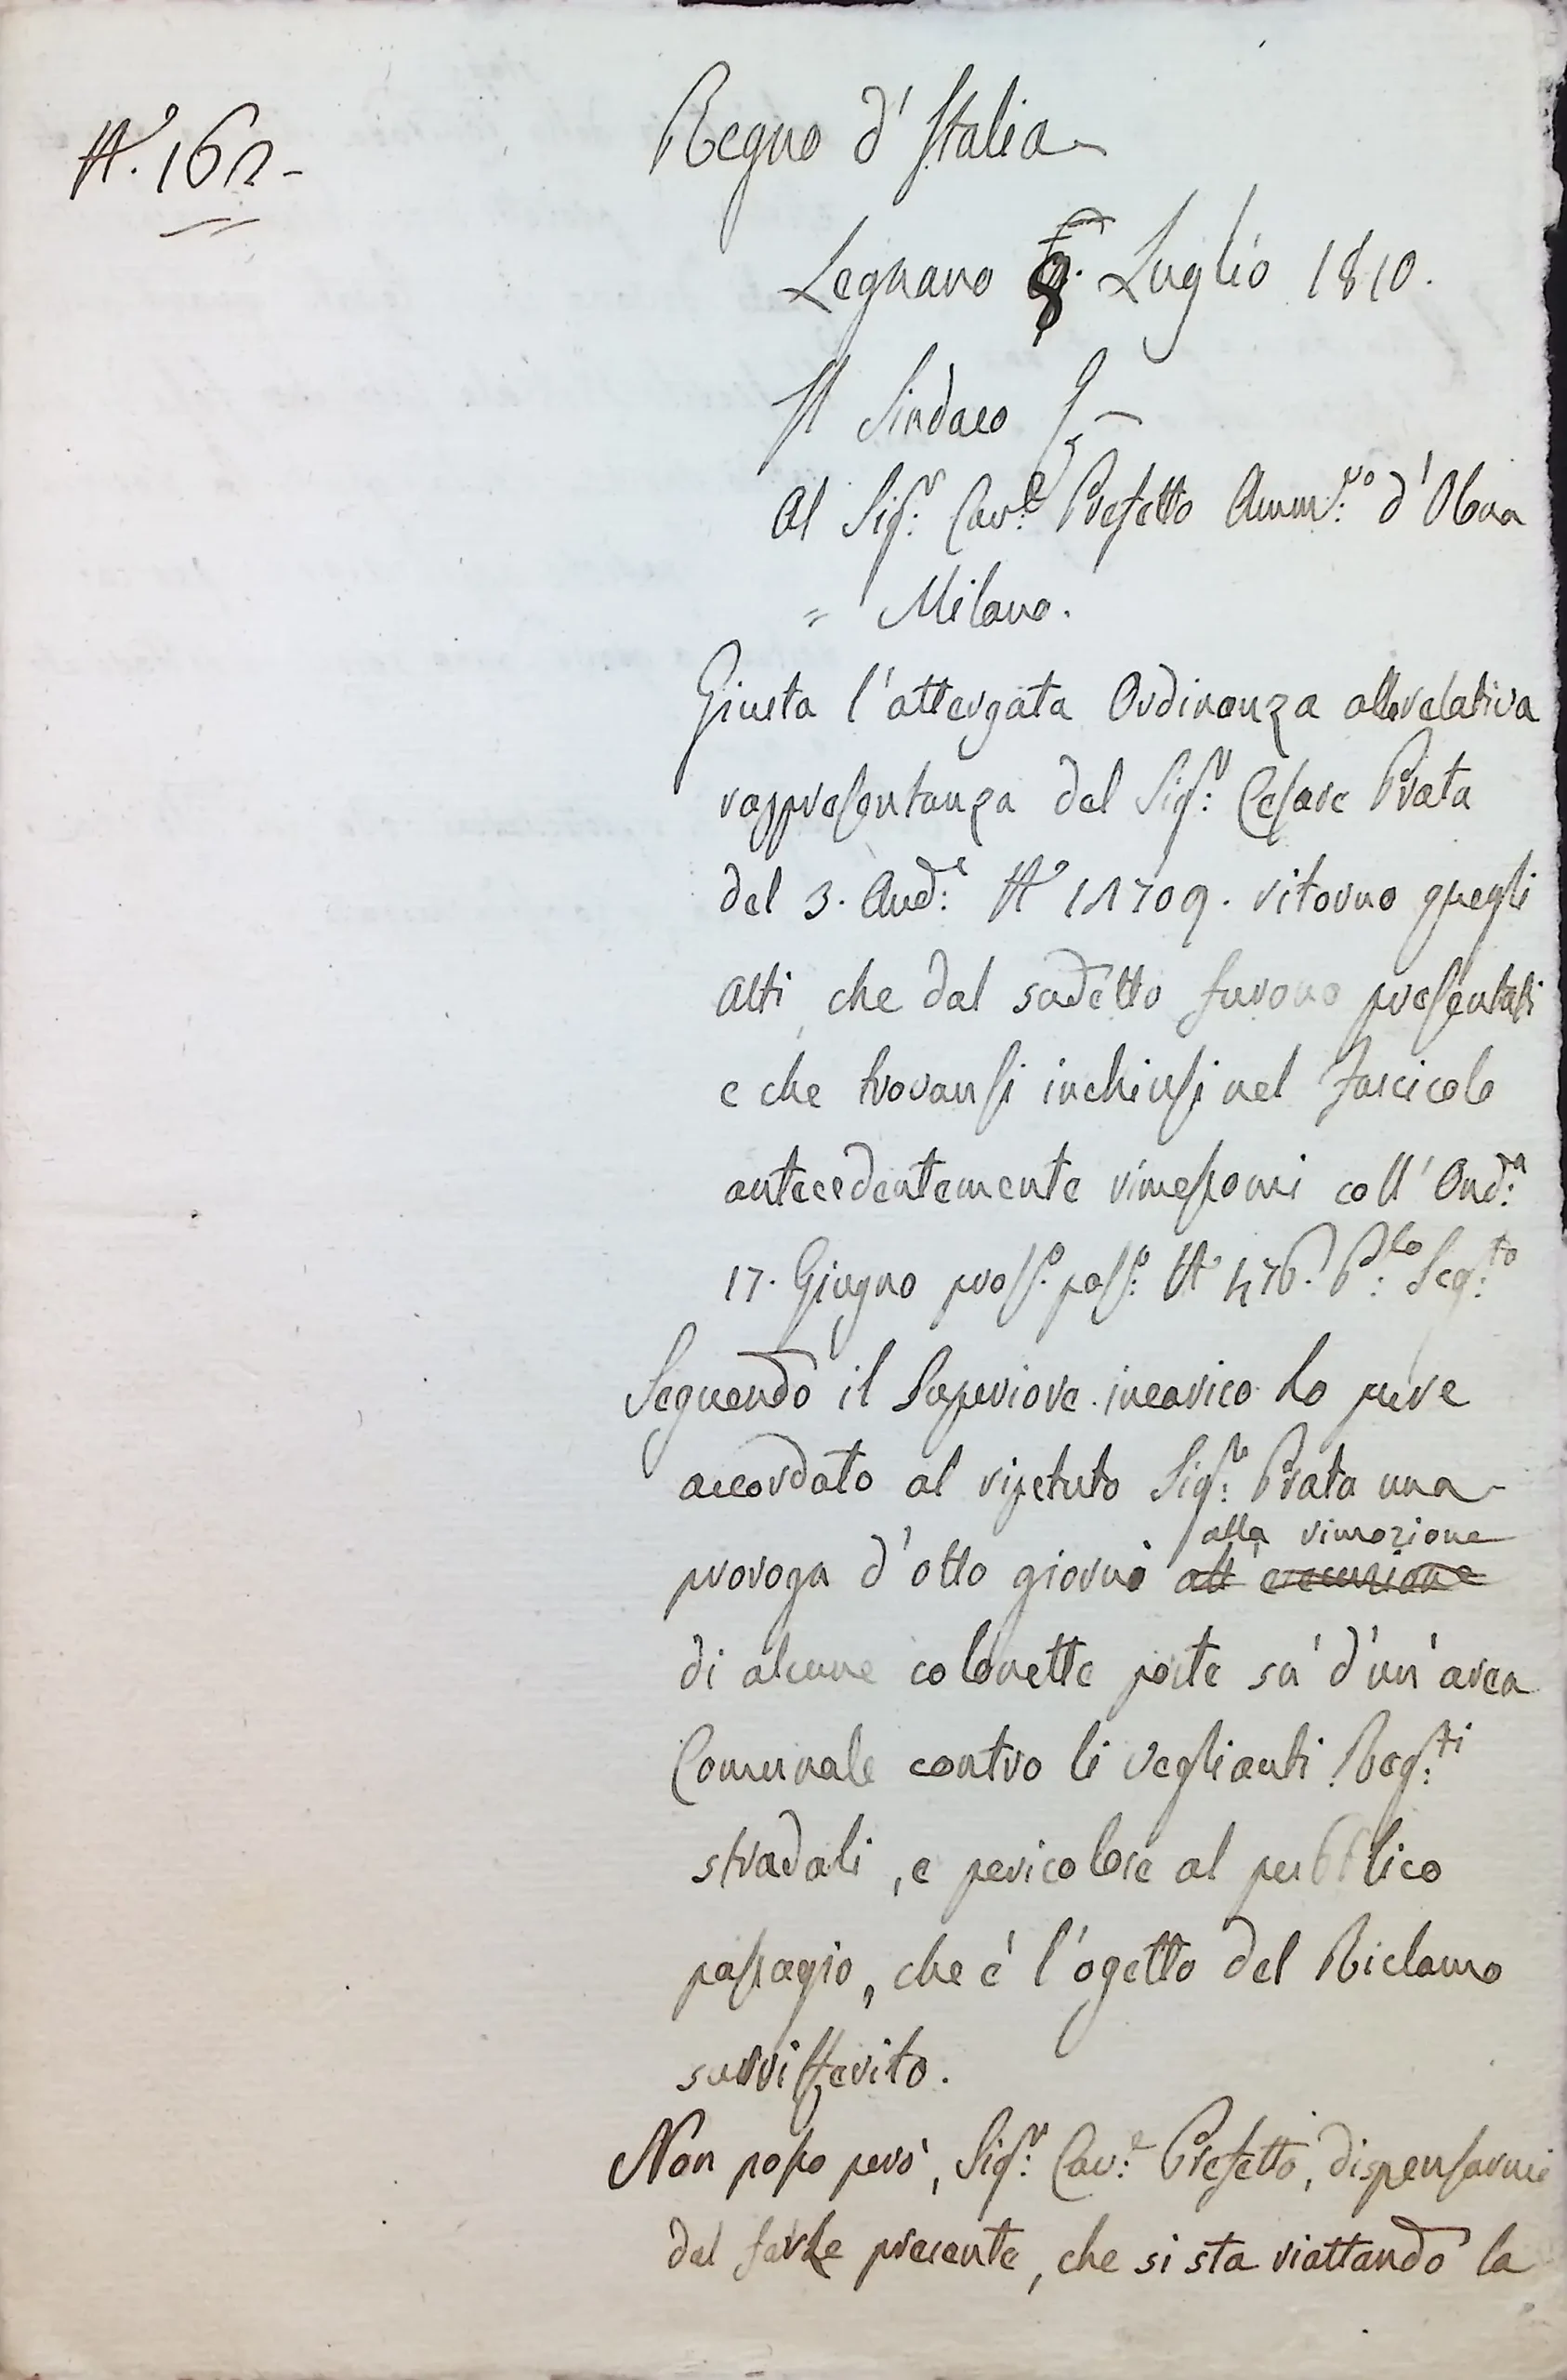 N.° 162-
Regno d'Italia
Legnano 8. Luglio 1810.
Il Sindaco
Al Sig.r Cav.e Prefetto Amm.vo d'Olona
= Milano.
Giusta l'attergata Ordinanza alla relativa
rappresentanza del Sig.r Cesare Prata
del 3. And.e N.°  ritorno quegli
Atti, che dal sudetto furono presentati
e che trovansi inchiusi nel Fascicolo
antecedentemente rimessomi coll' Ord.a
17. Giugno pross.o pass.o N.°
Seguendo il Superiore incarico ho pure
accordato al ripetuto Sig.r Prata una
proroga d'otto giorni all' esecuzione alla rimozione
di alcune colonette poste su' d'un' area
Comunale contro li veglianti Reg.ti
stradali, e pericolose al pubblico
passagio, che è l'ogetto del Riclamo
surrifferito.
Non posso però, Sig.r Cav.e Prefetto, dispensarmi
dal farLe presente, che si sta riattando la